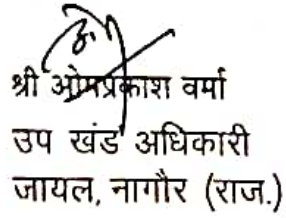 श्री ओमप्रकाश वर्मा
उप खंड अधिकारी
जायल, नागौर (राज.)